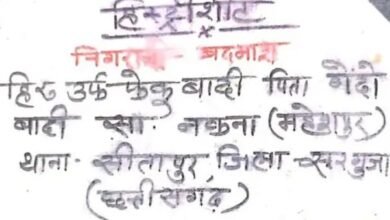 हिस्ट्रीशीट
निगरानी - बदमाश
हिरू उर्फ फेकु बादी पिता गेंदो
बादी सा. नकना (महेशपुर)
थाना - सीतापुर जिला - सरगुजा
(छत्तीसगढ़)